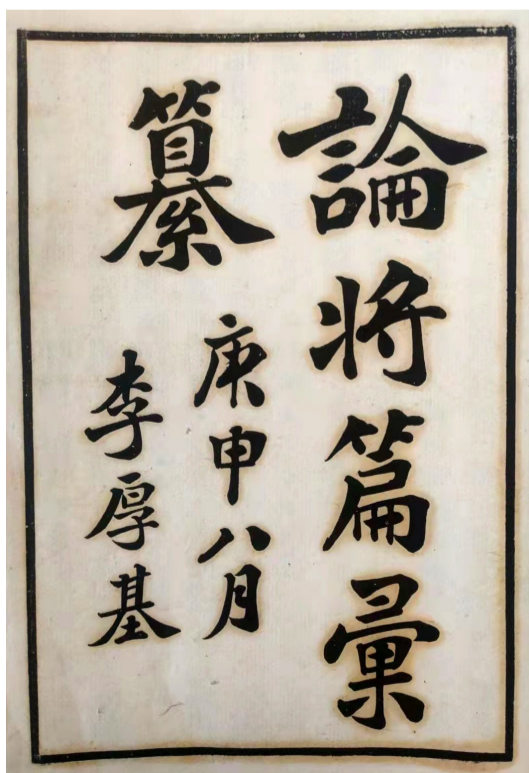 論將篇彙
纂
庚申八月
李厚基